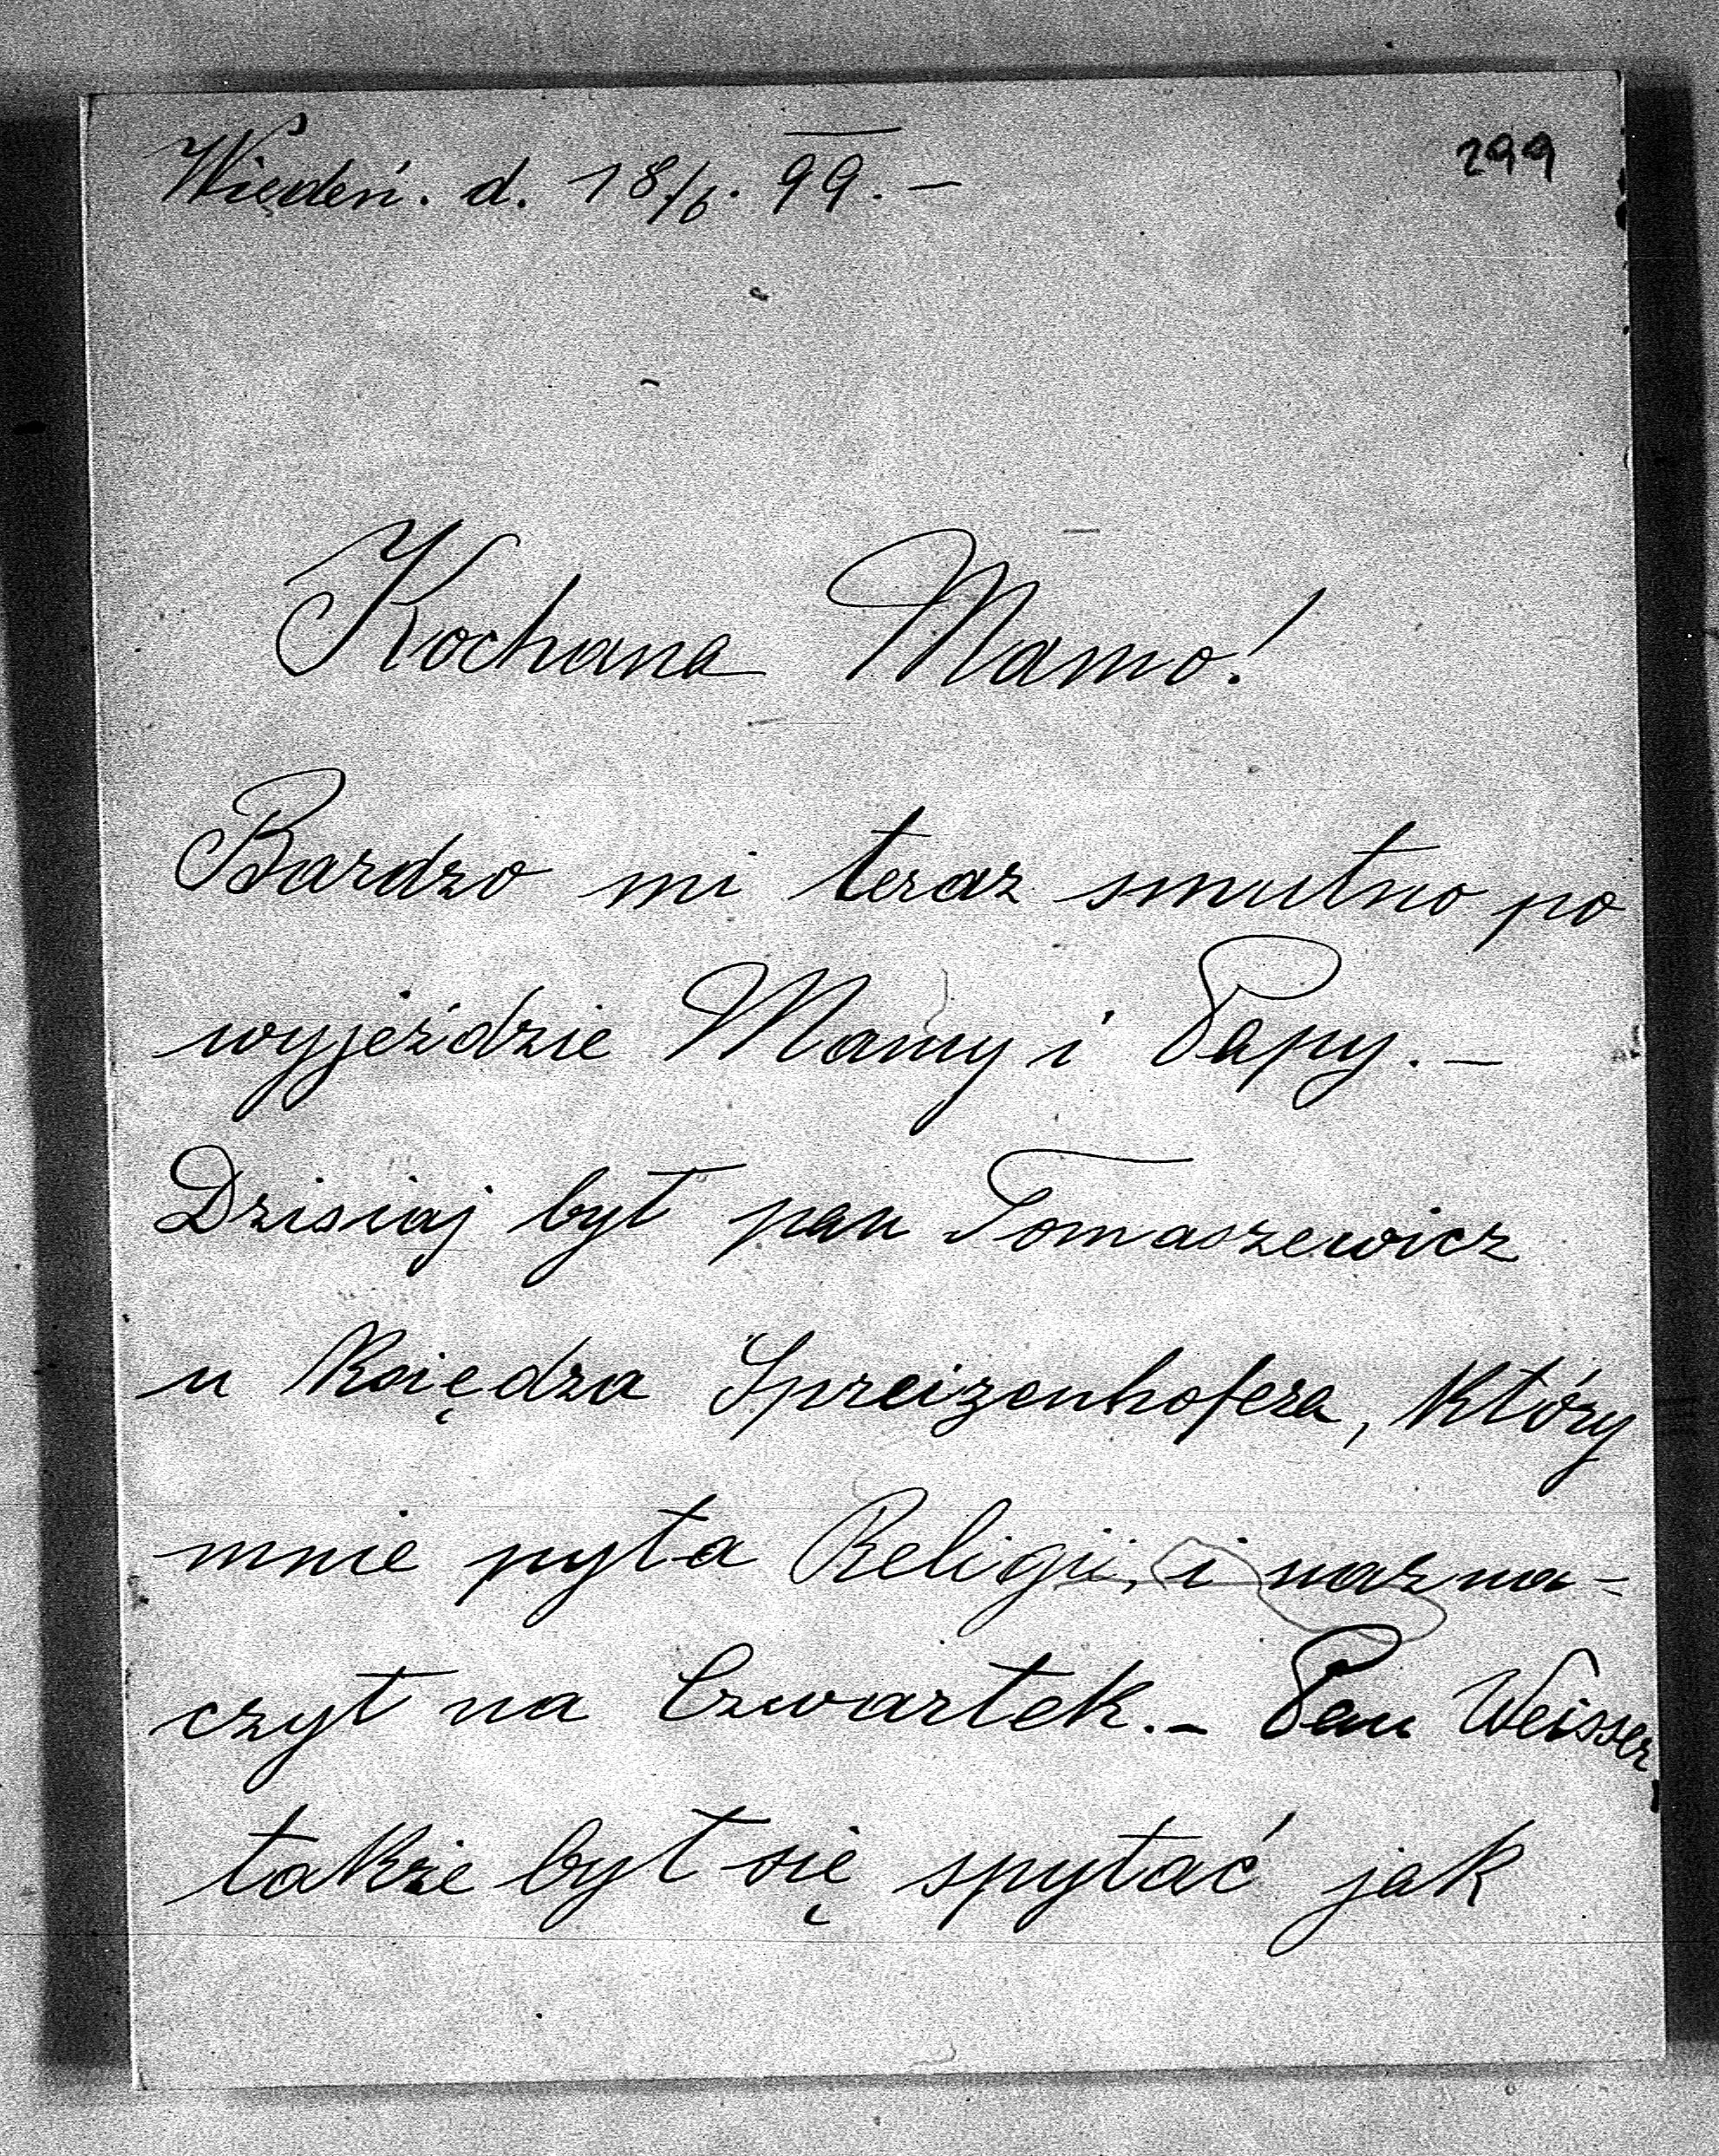 Wiedeń. d. 18/6. 99. —
299
Kochana Mamo!
Bardzo mi teraz smutno po
wyjeździe Mamy i Papy. —
Dzisiaj był pan Tomaszewicz
u Księdza Spreizenhofera, który
mnie pyta Religii, i nazna=
czył na Czwartek. — Pan Weisser
także był się spytać jak